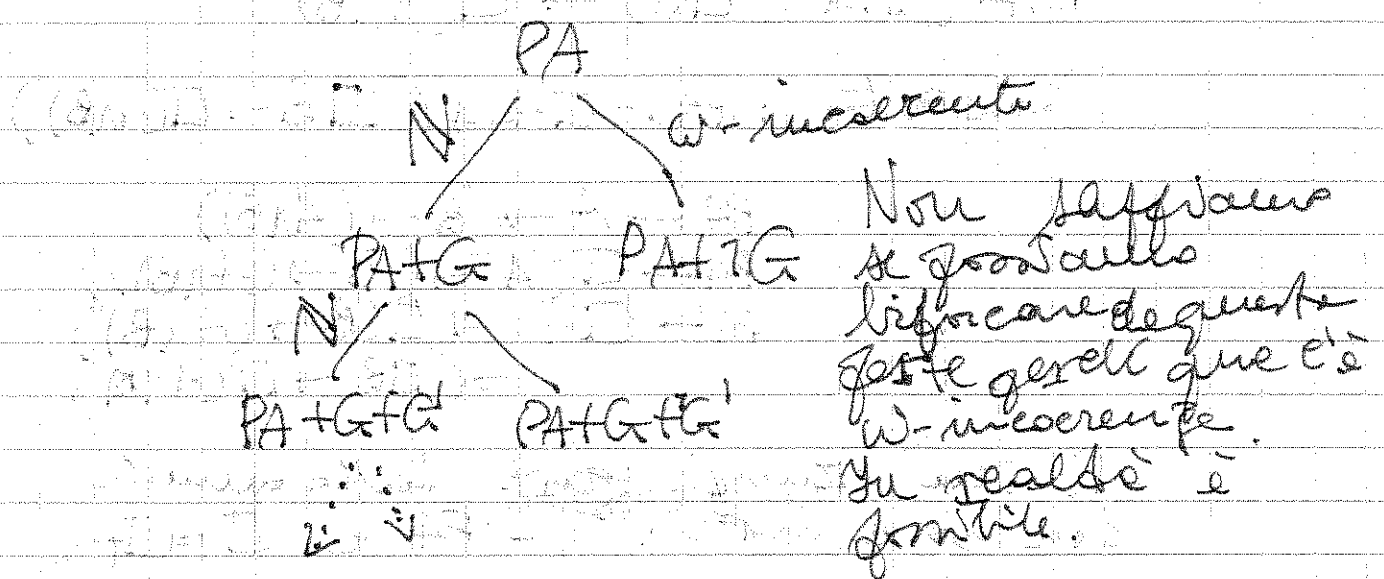 PA
N
ω-incoerente
PA+G
PA+¬G
Non sappiamo
se possiamo
biforcare da questa
parte perché qua c'è
ω-incoerenza.
In realtà è
possibile.
N
PA+G+G'
PA+G+¬G'